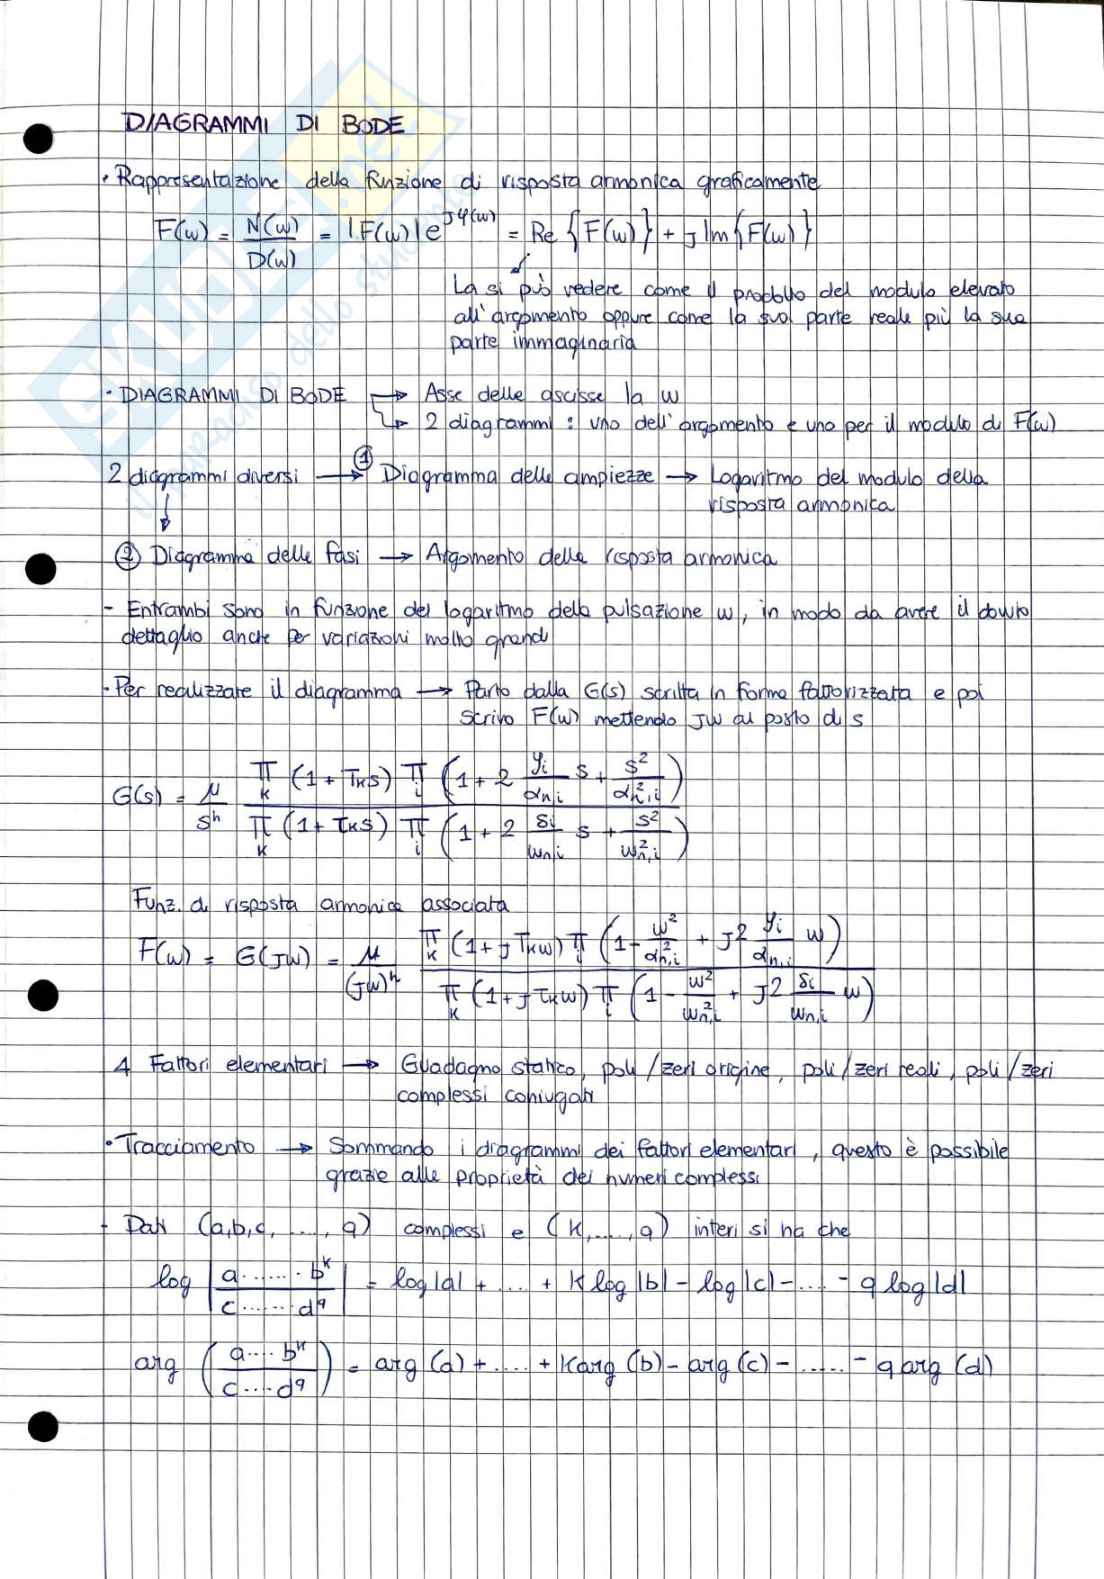 DIAGRAMMI DI BODE
• Rappresentazione della funzione di risposta armonica graficamente
F(ω) = N(ω)/D(ω) = |F(ω)| e^{Jφ(ω)} = Re {F(ω)} + J Im {F(ω)}
La si può vedere come il prodotto del modulo elevato
all'argomento oppure come la sua parte reale più la sua
parte immaginaria
• DIAGRAMMI DI BODE → Asse delle ascisse la ω
↳ 2 diagrammi : uno dell'argomento e uno per il modulo di F(ω)
2 diagrammi diversi → ① Diagramma delle ampiezze → Logaritmo del modulo della
risposta armonica
↓
② Diagramma delle fasi → Argomento della risposta armonica
- Entrambi sono in funzione del logaritmo della pulsazione ω, in modo da avere il dovuto
dettaglio anche per variazioni molto grandi
• Per realizzare il diagramma → Parto dalla G(s) scritta in forma fattorizzata e poi
scrivo F(ω) mettendo Jω al posto di s
G(s) = μ/s^h · [∏_k (1 + T_k s) ∏_i (1 + 2 y_i/α_{n,i} s + s²/α²_{n,i})] / [∏_k (1 + τ_k s) ∏_i (1 + 2 δ_i/ω_{n,i} s + s²/ω²_{n,i})]
Funz. di risposta armonica associata
F(ω) = G(Jω) = μ/(Jω)^h · [∏_k (1 + J T_k ω) ∏_i (1 - ω²/α²_{n,i} + J2 y_i/α_{n,i} ω)] / [∏_k (1 + J τ_k ω) ∏_i (1 - ω²/ω²_{n,i} + J2 δ_i/ω_{n,i} ω)]
4 Fattori elementari → Guadagno statico, poli/zeri origine, poli/zeri reali, poli/zeri
complessi coniugati
• Tracciamento → Sommando i diagrammi dei fattori elementari, questo è possibile
grazie alle proprietà dei numeri complessi
- Dati (a,b,c, ....., q) complessi e (k,....,q) interi si ha che
log |a.......b^k / c......d^q| = log|a| + ... + k log|b| - log|c| - .... - q log|d|
arg (a....b^k / c....d^q) = arg (a) + .... + k arg (b) - arg (c) - ..... - q arg (d)